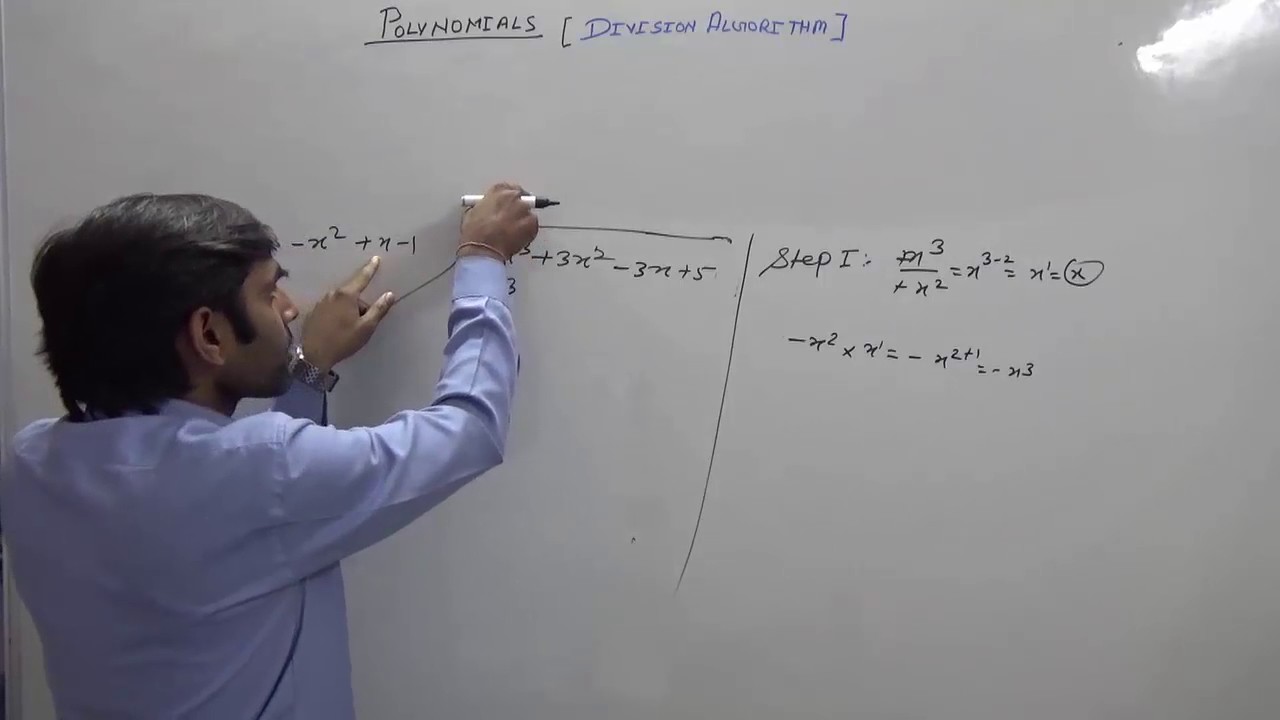 POLYNOMIALS [DIVISION ALGORITHM]
-x² + x - 1
x³ + 3x² - 3x + 5
3
Step I: -x³/-x² = x³⁻² = x¹ = x
-x² × x¹ = - x²⁺¹ = - x³